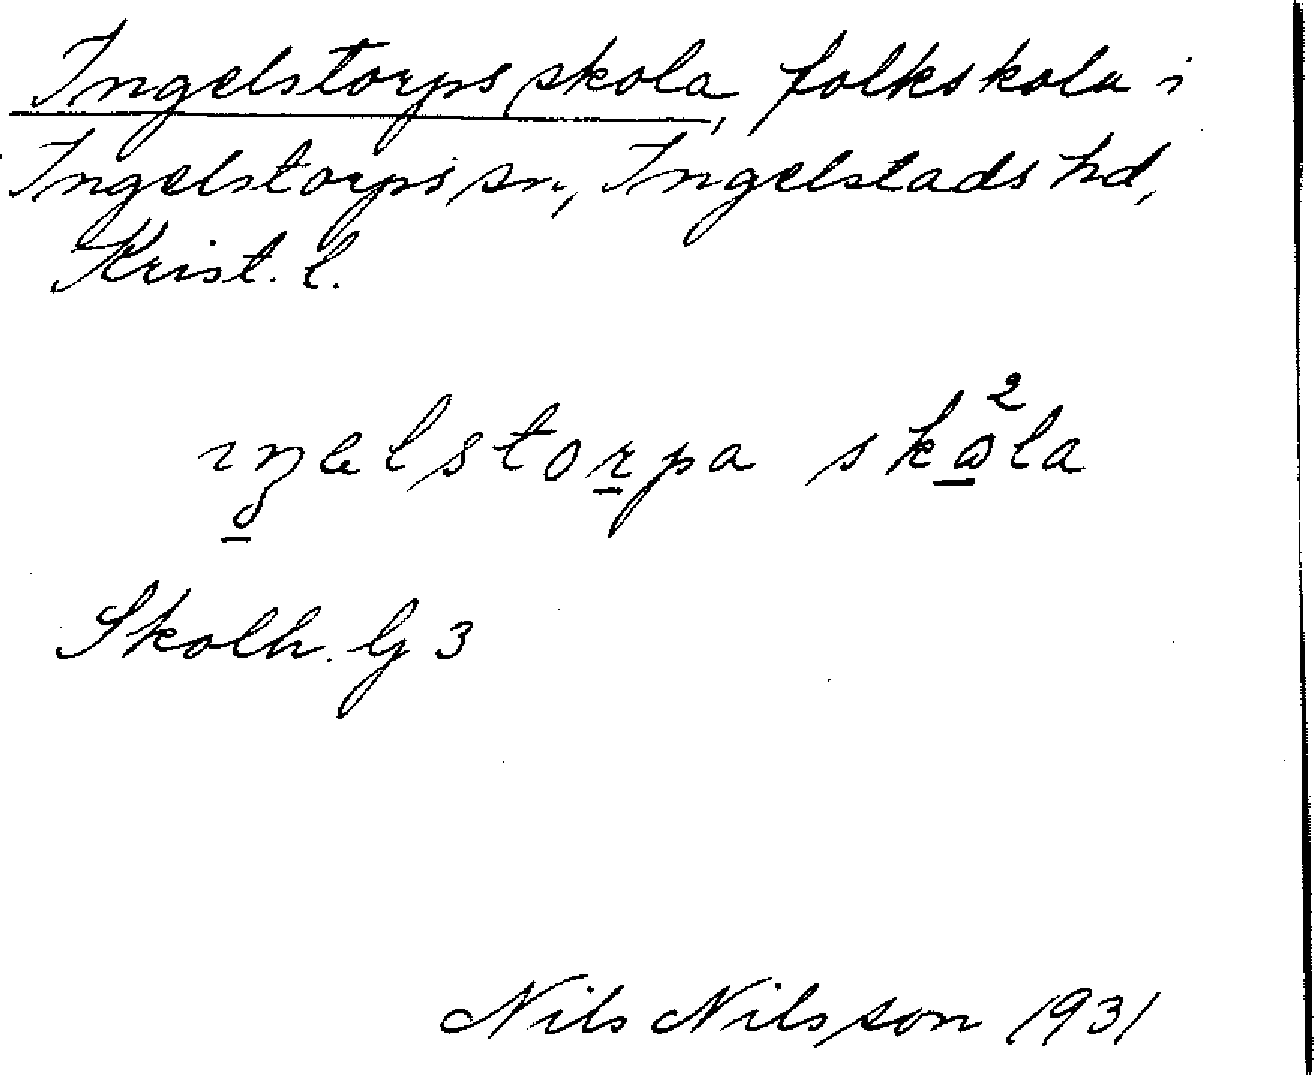 Ingelstorps skola, folkskola i
Ingelstorps sn, Ingelstads hd,
Krist. l.
ıŋəlstorpa skola
Skolh. G 3
Nils Nilsson 1931